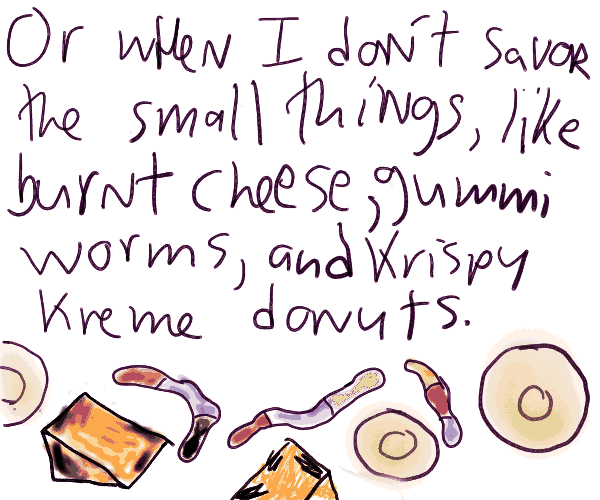 Or when I don't savor
the small things, like
burnt cheese, gummi
worms, and Krispy
Kreme donuts.